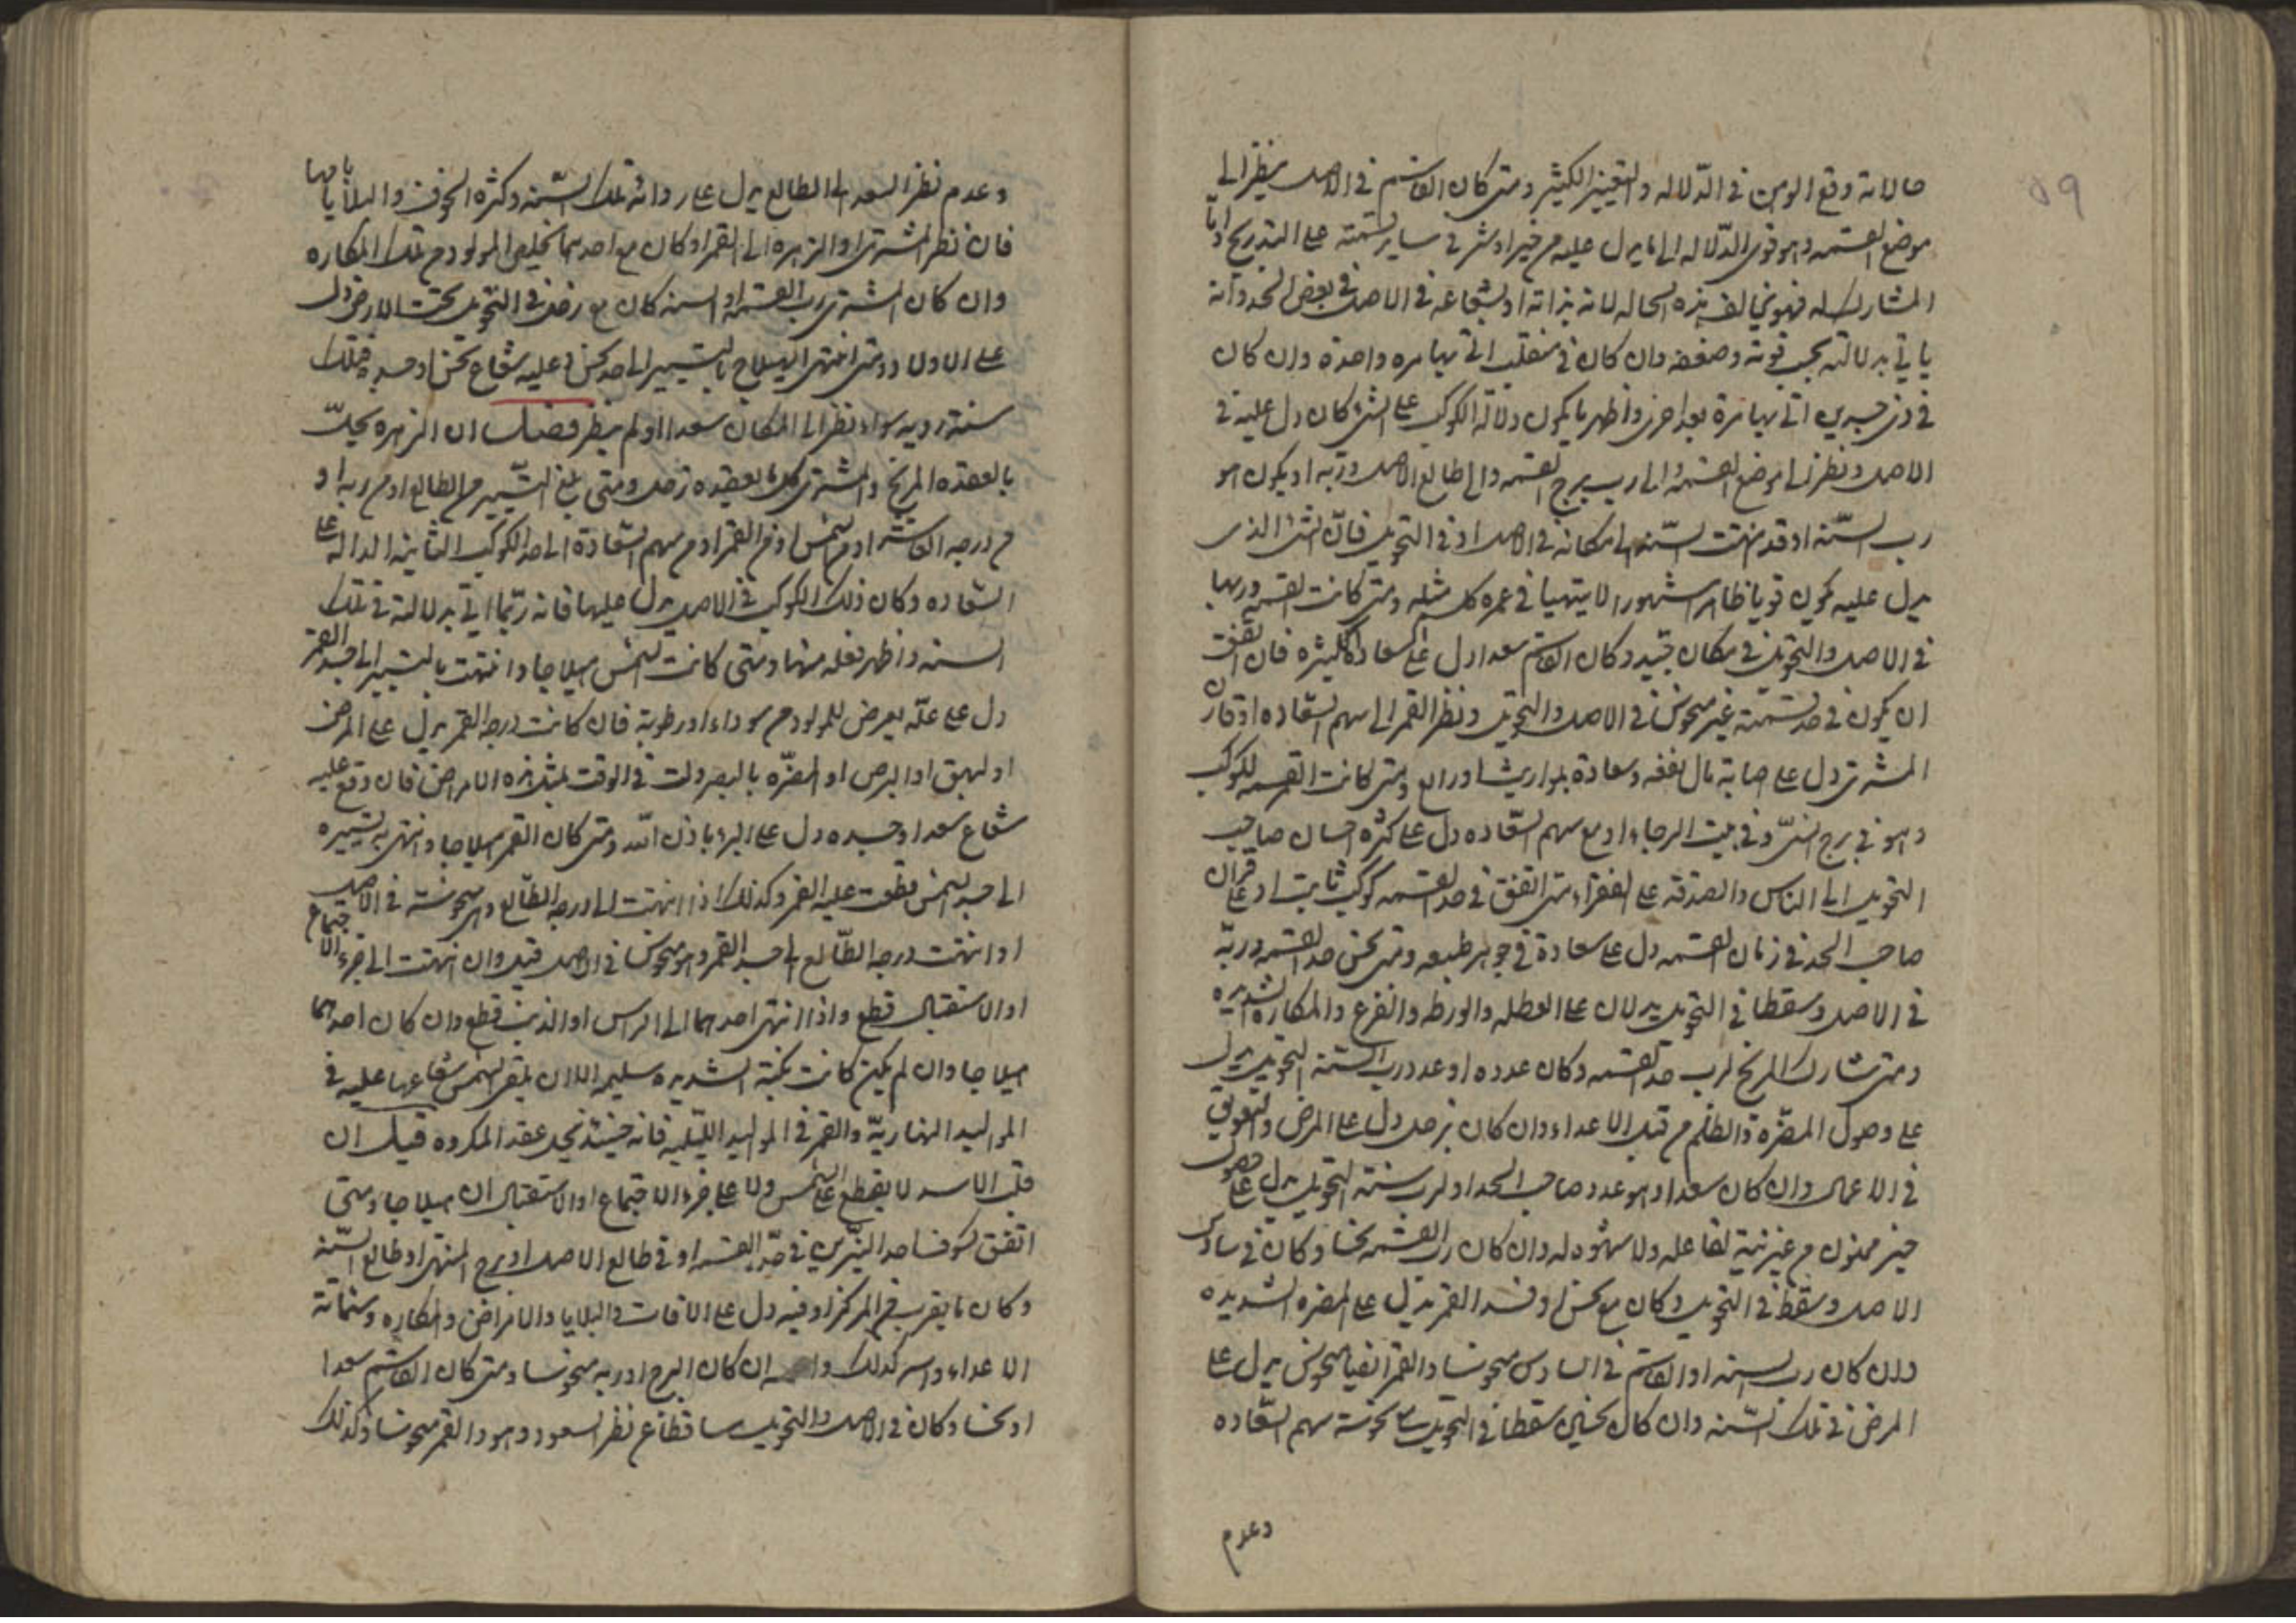 حالاته وقع الوهن في الدلاله والتغيير الكثير ومتى كان القاسم في الاصل ينظر الى
موضع القسمه وهو قوى الدلاله الى ما يدل عليه من خير او شر في ساير قسمته على التدريج واما
المشارك له فهو يخالف هذه الحاله لانه بذاته او بشعاعه في الاصل في بعض الحدود وانه
ياتي بدلالته بحسب قوته وضعفه وان كان في منقلب اتى بها مره واحدة وان كان
في ذي جسدين اتى بها مرة بعد اخرى واظهر ما يكون دلالة الكوكب على الشئ كان دل عليه في
الاصل ونظر الى موضع القسمه والى رب برج القسمه والى طالع الاصل وربه او يكون هو
رب السنه او قد انتهت السنه الى مكانه في الاصل او في التحويل فان الشئ الذى
يدل عليه يكون قويا ظاهرا مشهورا لا يتهيا في عمره كل مثله ومتى كانت القسمه وربها
في الاصل والتحويل في مكان جيد وكان القاسم سعدا دل على السعادة الكثيره فان اتفق
ان يكون في حد قسمته غير منحوس في الاصل والتحويل ونظر القمر الى سهم السعاده او قارن
المشترى دل على اصابة مال بغفه وسعادة بمواريث او ودايع ومتى كانت القسمه لكوكب
وهو في برج النير وفي بيت الرجاء او مع سهم السعاده دل على كثره احسان صاحب
التحويل الى الناس والصدقه على الفقراء ومتى اتفق في حد القسمه كوكب ثابت او على قران
صاحب الحد في زمان القسمه دل على سعادة في جوهر طبيعه ومتى نحس حد القسمه وربه
في الاصل وسقطا في التحويل يدلان على العطله والورطه والفزع والمكاره الشديده
ومتى شارك المريخ لرب حد القسمه وكان عدوه او عدو رب السنه التحويل يدل
على وصول المضره والظلم من قبل الاعداء وان كان بزحل دل على المرض والتعويق
في الاعمال وان كان سعدا وهو عدو صاحب الحد او لرب سنة التحويل يدل على حصول
خير ممنون من غير نية لفاعله ولا شهوه له وان كان رب القسمه نحسا وكان في سادس
الاصل وسقط في التحويل وكان مع نحس او فسد القمر يدل على المضره الشديده
وان كان رب السنه او القاسم في السادس منحوسا والقمر ايضا منحوس يدل على
المرض في تلك السنه وان كان نحسين سقطا في التحويل مع نحوسة سهم السعاده
وعدم
وعدم نظر السعد الى الطالع يدل على رداءة تلك السنه وكثره الخوف والبلايا بها
فان نظر المشترى او الزهره الى القمر او كان مع احدهما تخلص المولود من تلك المكاره
وان كان المشترى رب القسمه او السنه كان مع زحل في التحويل تحت الارض دل
على الاولاد ومتى انتهى الهيلاج بالتسيير الى حد نحس في عليه شعاع نحس او جسده فتلك
سنة رديه سواء نظر الى المكان سعدا او لم ينظر فضل ان الزهره تحل
بالعقده المريخ والمشترى كل ما يعقده زحل ومتى بلغ التسيير من الطالع او من ربه او
من درجه العاشر او من الشمس او من القمر او من سهم السعادة الى احد الكواكب الثابته الداله على
السعاده وكان ذلك الكوكب في الاصل يدل عليها فانه ربما اتى بدلالته في تلك
السنه واظهر فعله منها ومتى كانت الشمس هيلاجا وانتهت بالتسيير الى جسد القمر
دل على علة يعرض للمولود من سوداء او رطوبة فان كانت درجه القمر يدل على المرض
او البهق او البرص او المضره بالبصر دلت في الوقت بمثل هذه الامراض فان وقع عليه
شعاع سعد او جسده دل على البرء باذن الله ومتى كان القمر هيلاجا وانتهى به تسييره
الى جسد الشمس قطعت عليه العمر وكذلك اذا انتهت الى درجه الطالع وهي منحوسة في الاصل
او انتهت درجه الطالع الى جسد القمر وهو منحوس في الاصل قتل وان انتهت الى جزء الاجتماع
او الاستقبال قطع واذا انتهى احدهما الى الراس او الذنب قطع وان كان احدهما
هيلاجا وان لم يكن كانت نكبة الشديده سليمه الا ان يلقى الشمس شعاعها عليه في
المواليد النهاريه والقمر في المواليد الليليه فانه حينئذ تحل عقد المكروه قيل ان
قلب الاسد لا يقطع على الشمس ولا على جزء الاجتماع او الاستقبال ان هيلاجا ومتى
اتفق كسوف احد النيرين في حد القسمه او في طالع الاصل او برج المنتهى او طالع السنه
وكان ما يقرب من المركز او فيه دل على الافات والبلايا والامراض والمكاره وشماتة
الاعداء والسر كذلك ان كان البرج او ربه منحوسا ومتى كان القاسم سعدا
او نحسا وكان في الاصل والتحويل ساقطا عن نظر السعود وهو والقمر منحوسا وكذلك